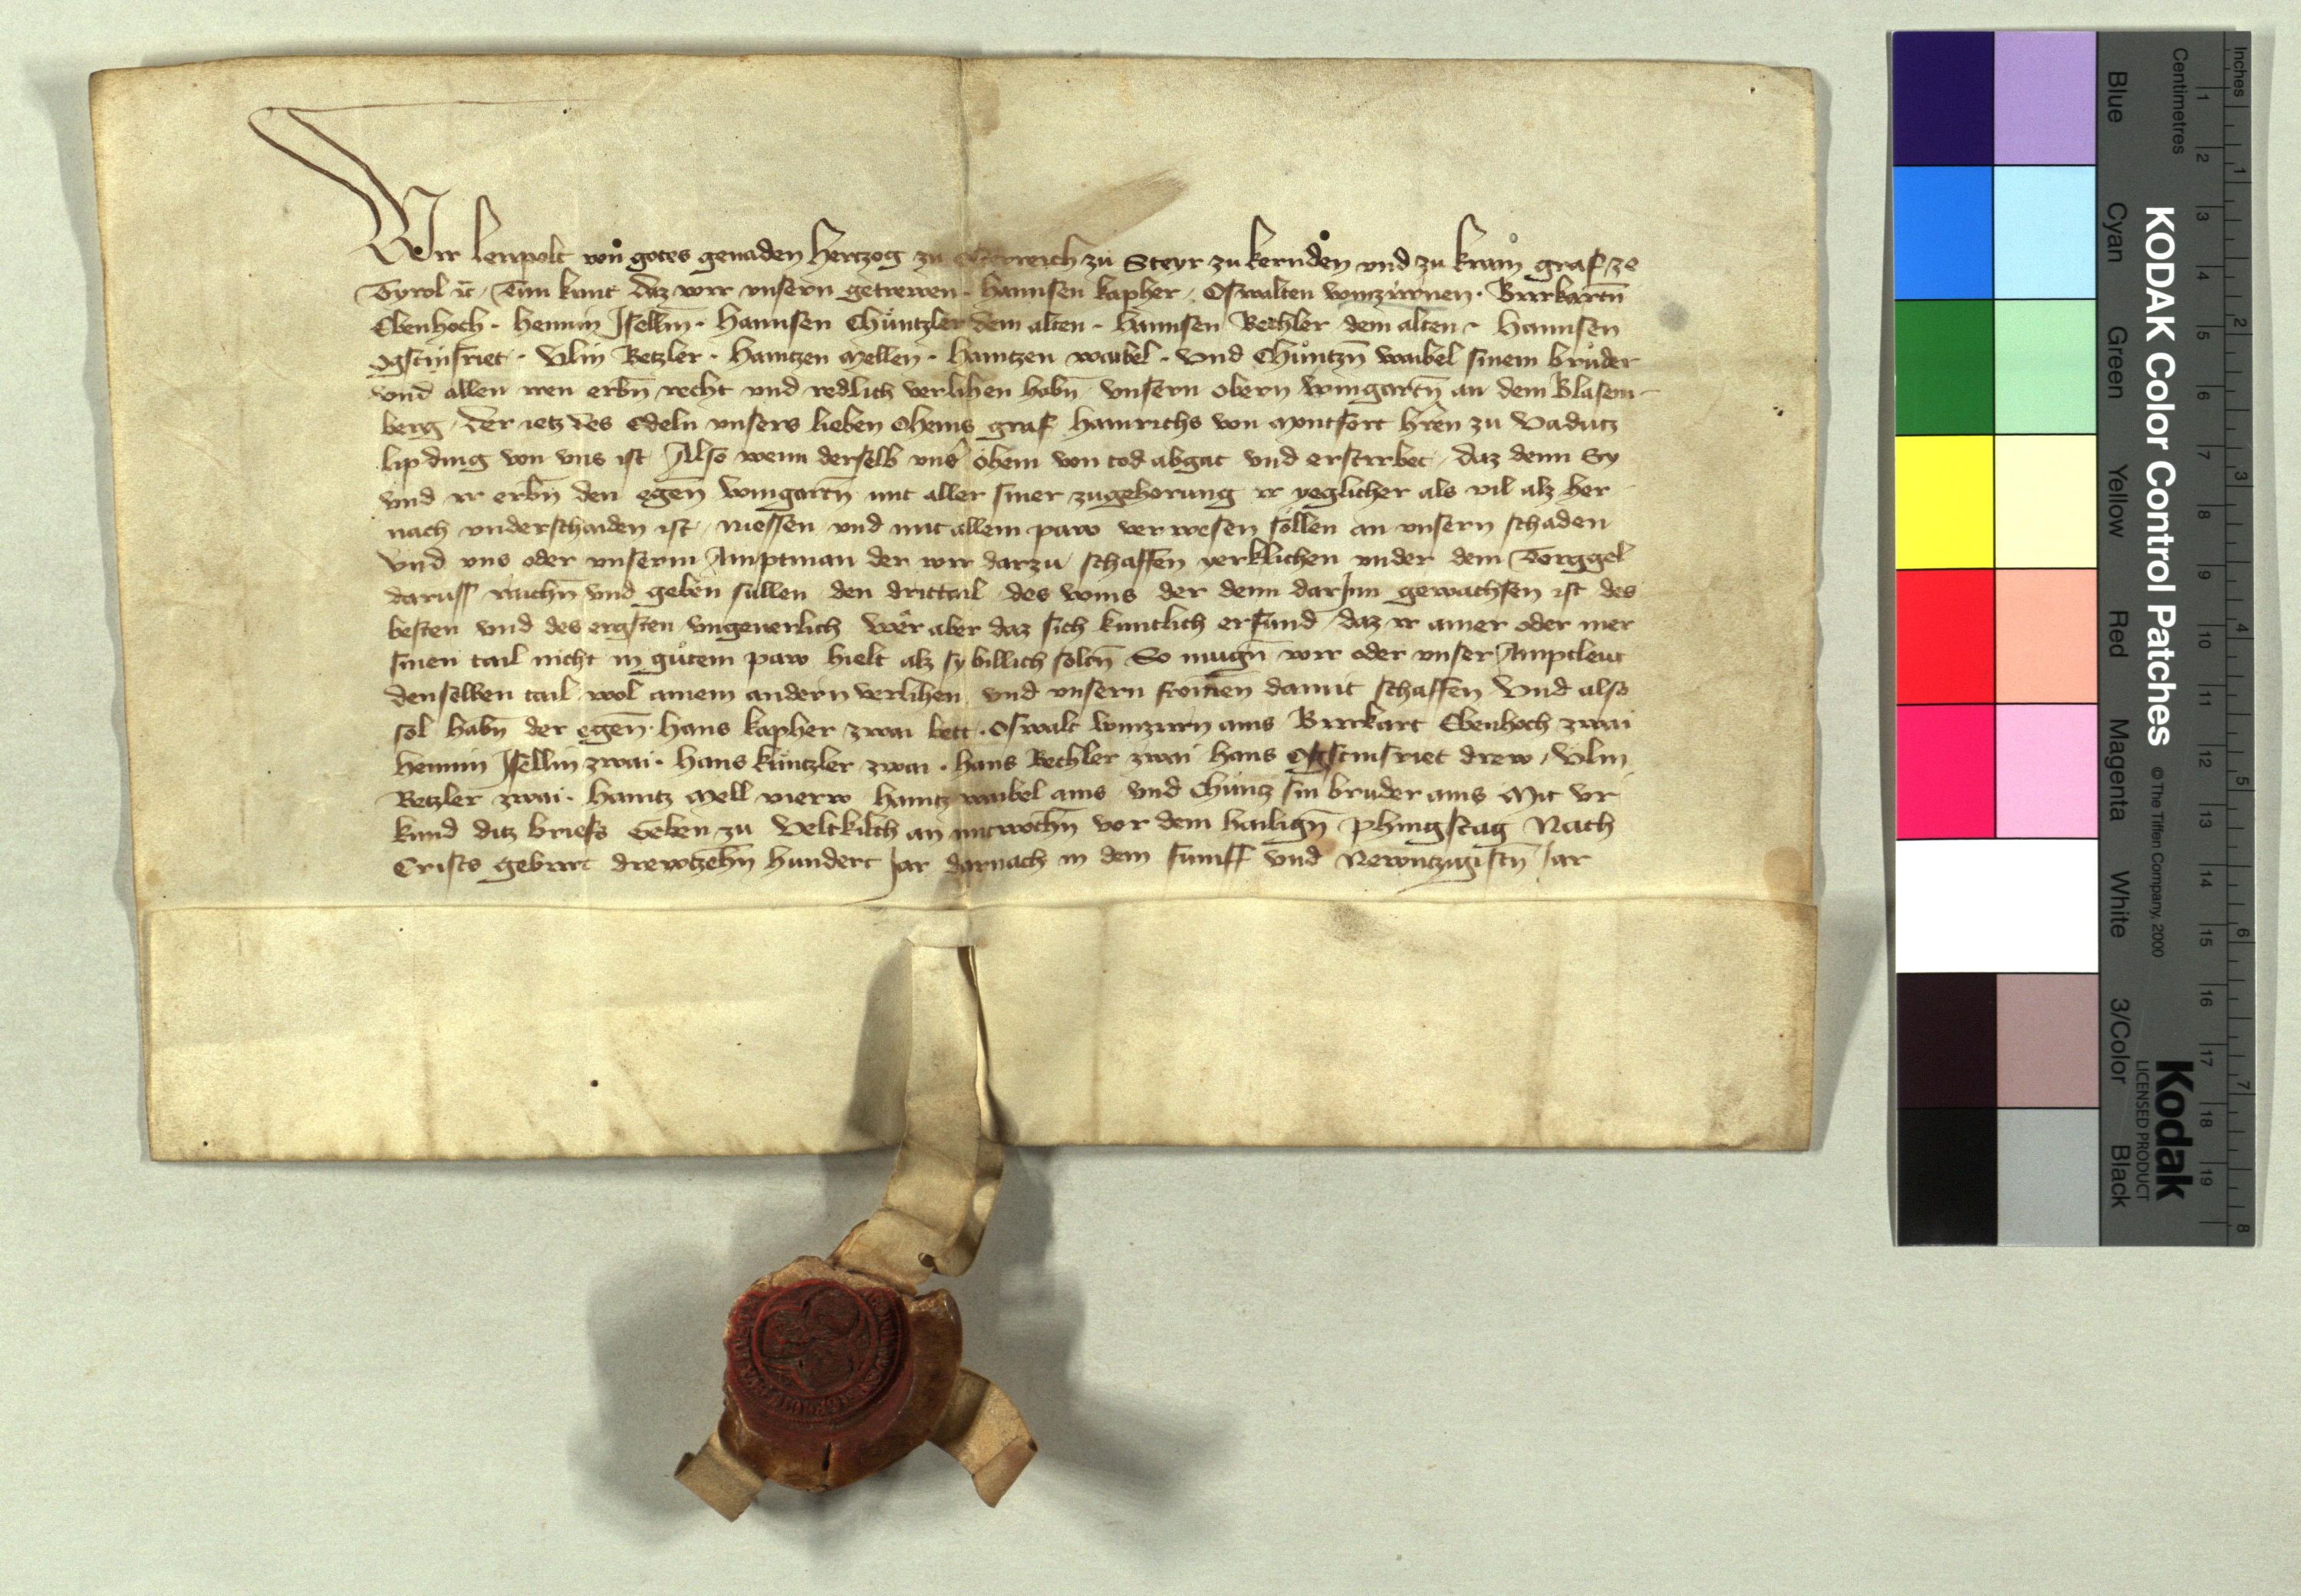 Wir Leupolt von gotes genaden Hertzog zu Osterreich zu Steyr zu kernden vnd zu krain graf ze
Tyrol ꝛc Tun kunt daz wir vnsern getrewen · Hannsen kapher · Oswalten winzurnen · Burkartn̄
Ebenhoch · hennin Jsellin · Hannsen Chüntzler dem alten · Hannsen Bechler dem alten · Hannsen
Ogstinsriet · Vlin Betzler · Haintzen Mellen · Haintzen waibel · Vnd Chůntzn̄ waibel sinem brůder
vnd allen iren erbn̄ recht vnd redlich verlihen habn̄ vnsern obern wingartn̄ an dem Blasem-
berg der ietz des Edeln vnsers lieben Oheins graf Hainrichs von Montfort h̄ren zu Vadutz
lipding von vns ist Also wenn derselb vns̄ óhein von tod abgat vnd erstirbet daz denn Sy
vnd ir erbn̄ den egen̄ wingartn̄ mit aller siner zugehorung ir yeglicher als vil alz her
nach vnderschaiden ist niessen vnd mit allem paw verwesen söllen an vnsern schaden
Vnd vns oder vnserm Amptman der wir darzu schaffen yerklichen vnder dem Torggel
daruss richn̄ vnd geben sullen den drittail des wins der denn darjnn gewachsen ist des
besten vnd des ergsten vngeuerlich Wër aber daz sich kuntlich erfund daz ir ainer oder mer
sinen tail nicht in gůtem paw hielt alz sy billich soltn̄ So mugn̄ wir oder vnser Amptleut
denselben tail wol ainem andern verlihen vnd vnsern fromen damit schaffen Vnd also
sol habn̄ der egen̄ · Hans kapher zwai bett · Oswalt winzurn ains Burkart Ebenhoch zwai
hennin Jsellin zwai · Hans küntzler zwai · Hans Bechler zwai Hans Ogstinsriet drew Vlin
Betzler zwai · Haintz Mell vierw Haintz waibel ains vnd Chůntz sin bruder ains Mit vr
kund ditz briefs Geben zu Veltkilch an mitwochn̄ vor dem hailign̄ phingstag Nach
Crists geburt drewtzehn̄ hundert jar darnach in dem fumff vnd Newntzigistn̄ Jar
KODAK Color Control Patches © The Tiffen Company, 2000
Kodak
LICENSED PRODUCT
Blue Cyan Green Yellow Red Magenta White 3/Color Black
Centimetres 1 2 3 4 5 6 7 8 9 10 11 12 13 14 15 16 17 18 19
Inches 1 2 3 4 5 6 7 8